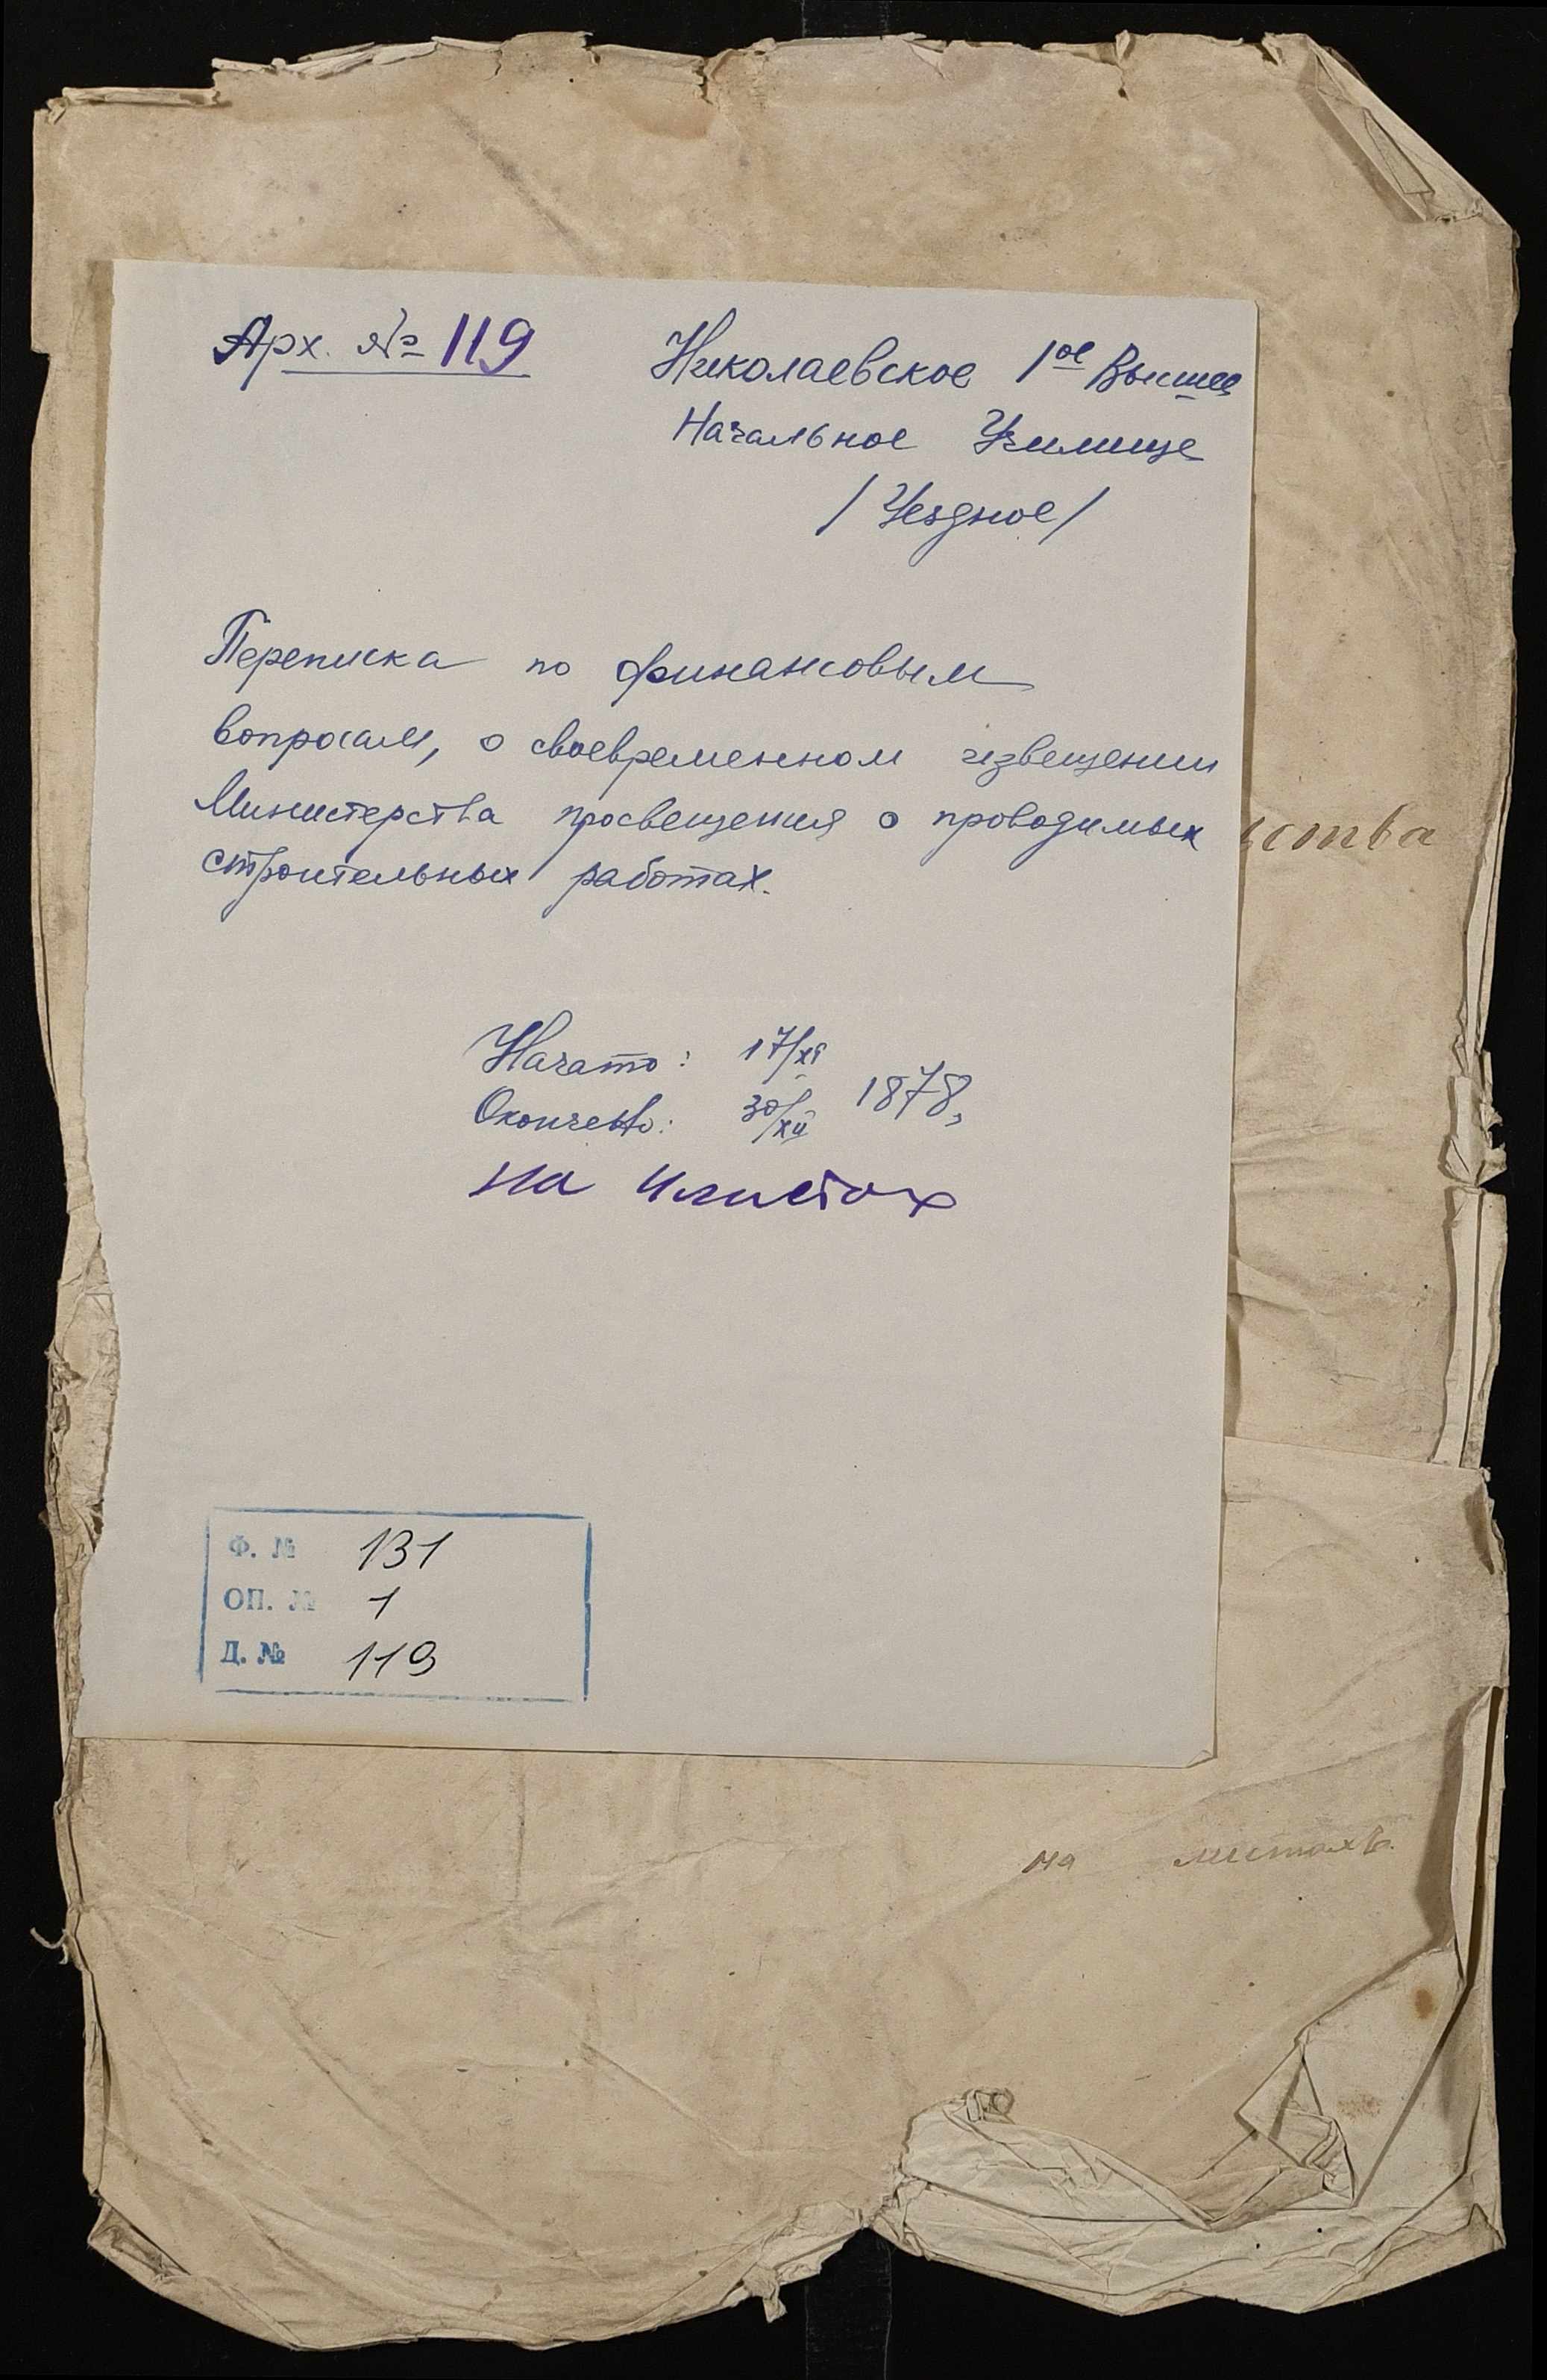 Арх. № 119
Николаевское 1ое Высшее
Начальное Училище
/Уездное/
Переписка по финансовым
вопросам, о своевременном извещении
Министерства просвещения о проводимых
строительных работах.
Начато: 17/XI
Окончено: 30/XII 1878
на 4 листах
ства
Ф. № 131
ОП. № 1
Д. № 119
на листахъ.